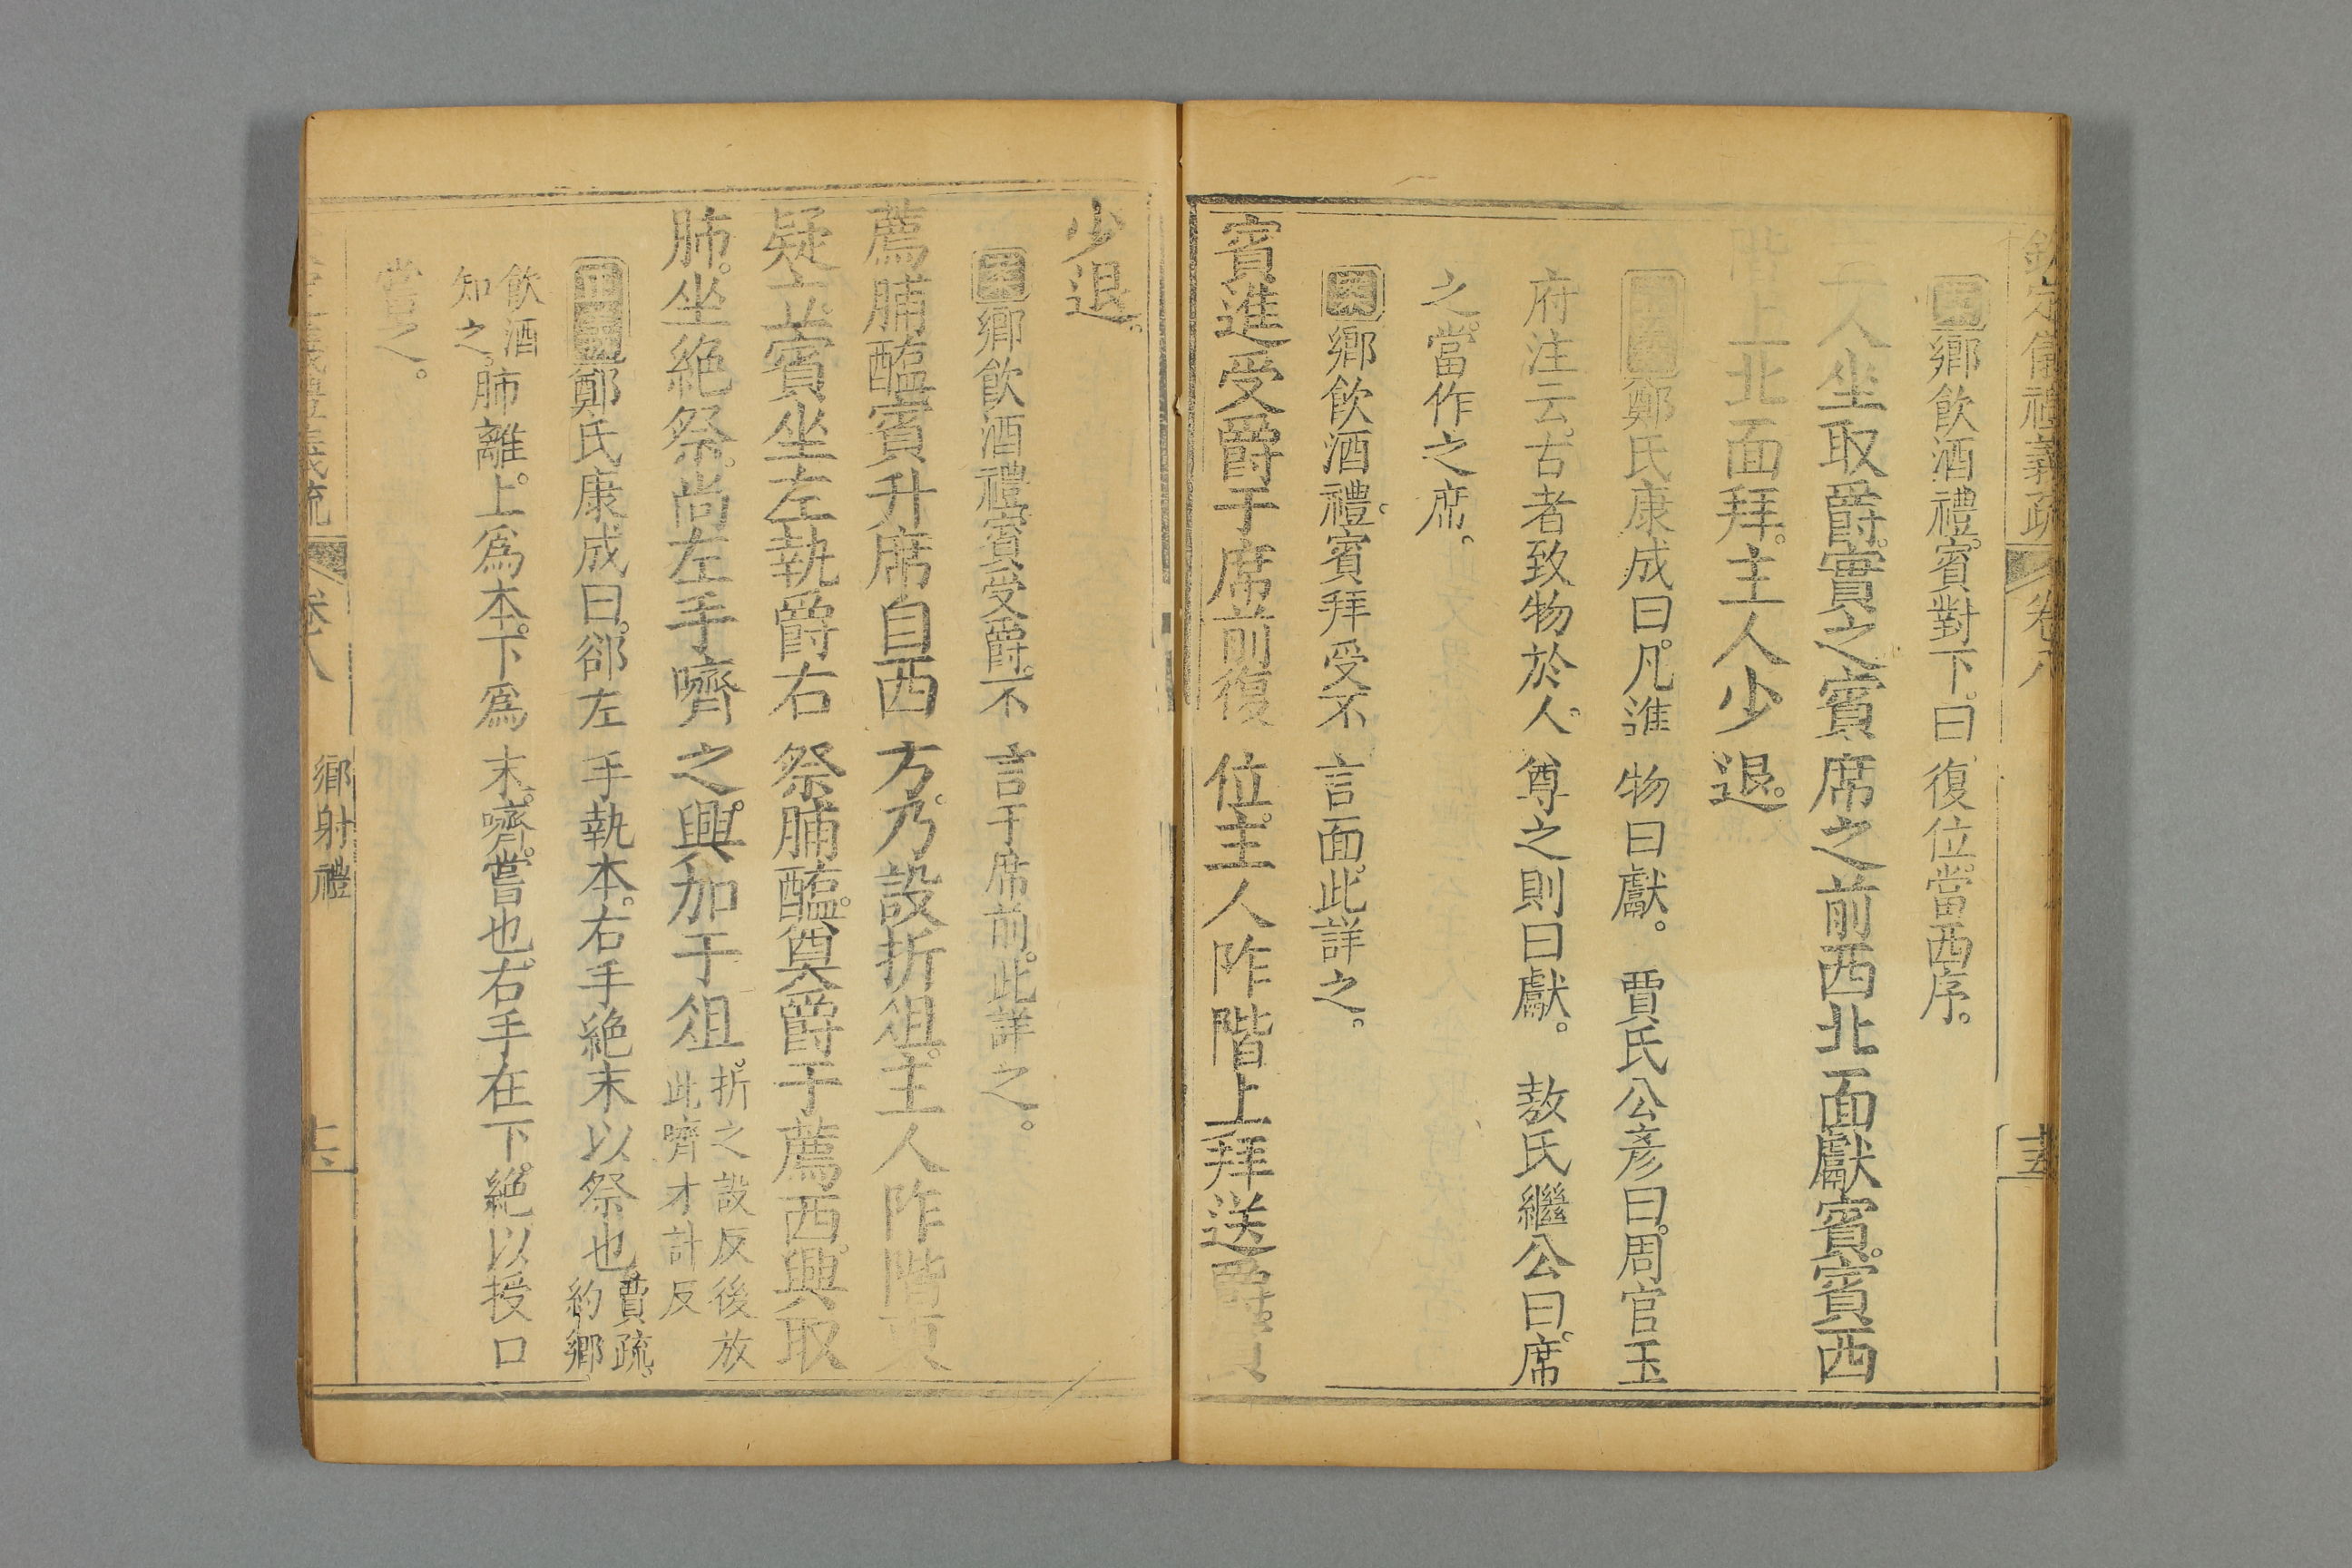 欽定儀禮義疏 卷八 十五
鄉飲酒禮。賓對下。曰復位當西序。
人坐取爵。實之賓席之前西北面獻賓。賓西
階上北面拜。主人少退。
鄭氏康成曰。凡進物曰獻。 賈氏公彥曰。周官玉
府注云。古者致物於人。尊之則曰獻。 敖氏繼公曰。席
之。當作之席。
鄉飲酒禮。賓拜受不言面。此詳之。
賓進受爵于席前復位。主人阼階上拜送爵。
少退。
鄉飲酒禮賓受爵。不言于席前。此詳之。
薦脯醢賓升席自西方。乃設折俎。主人阼階東
疑立。賓坐左執爵右祭脯醢。奠爵于薦西。興取
肺。坐絕祭。尚左手嚌之。興加于俎。折之設反後放
此嚌才計反
鄭氏康成曰。卻左手執本。右手絕末以祭也。賈疏。
約鄉
飲酒
知之。肺離。上爲本。下爲末。嚌。嘗也。右手在下。絕以授口
嘗之。
卷八 鄉射禮